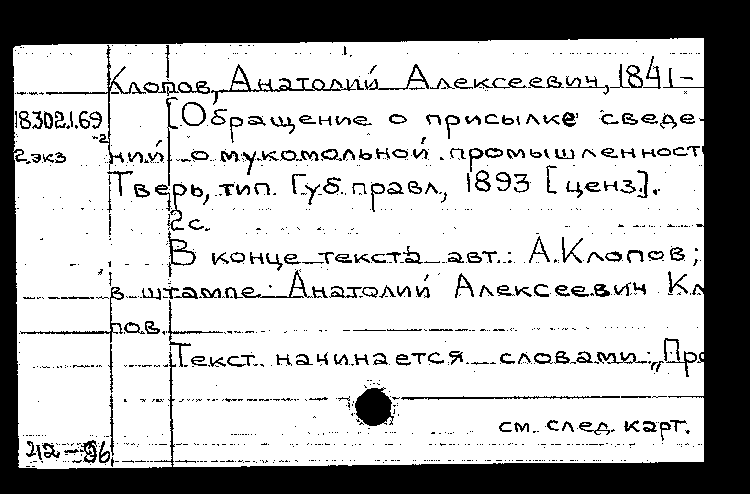 Клопов, Анатолий Алексеевич, 1841-
18302.1.69 [Обращение о присылке сведе-
-2
2 экз ний о мукомольной промышленност
Тверь, тип. Губ. правл, 1893 [ценз].
2 с.
В конце текста авт.: А. Клопов;
в штампе: Анатолий Алексеевич Кл
пов.
Текст начинается словами: „Пр
см. след. карт.
212-96